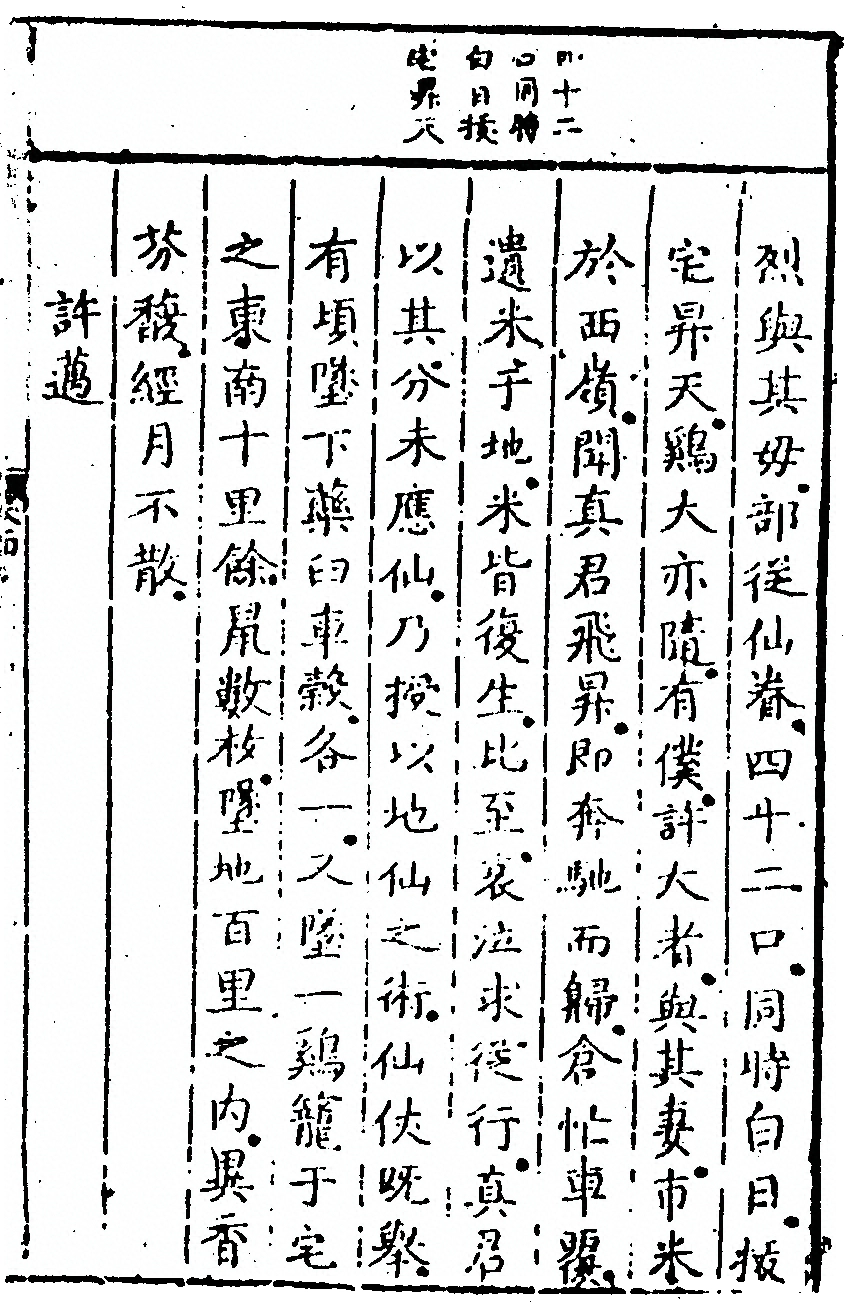 四十二
口同時
白日拔
宅昇天
烈與其毋部從仙眷四十二口同時白日拔
宅昇天鷄犬亦隨有僕許大者與其妻市米
於西嶺聞真君飛昇即奔馳而歸倉忙車覆
遺米于地米皆復生比至哀泣求從行真君
以其分未應仙乃授以地仙之術仙仗既舉
有頃墜下藥臼車轂各一又墜一鷄籠于宅
之東南十里餘鼠數枚墮地百里之內異香
芬馥經月不散
許邁